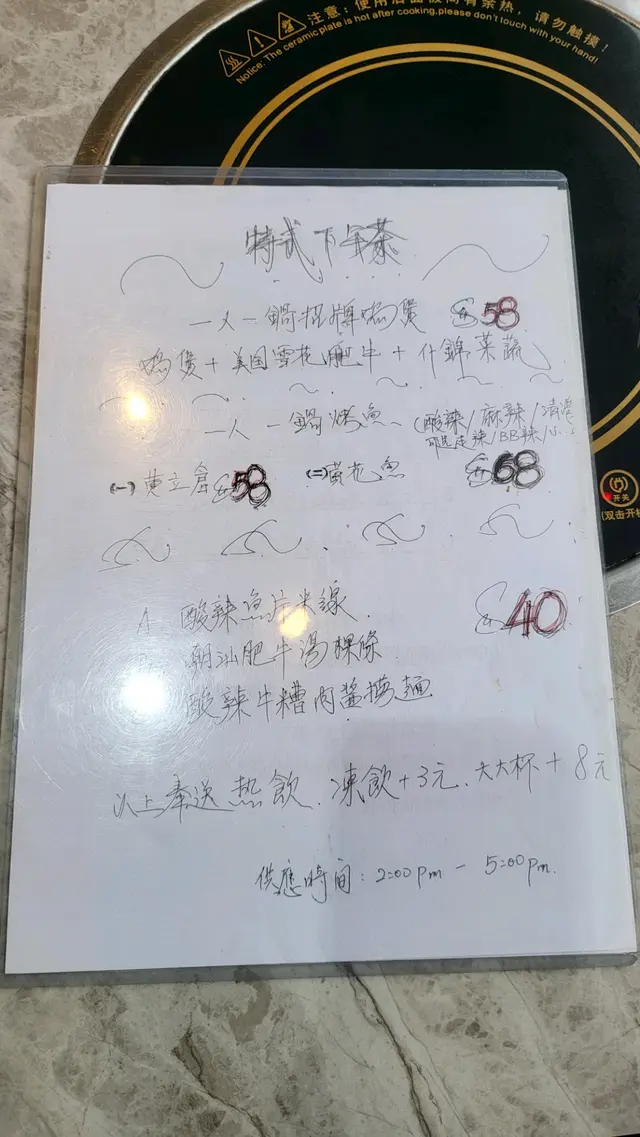 注意：使用后面板尚有余热，请勿触摸！
Notice: The ceramic plate is hot after cooking,please don't touch with your hand!
特式下午茶
一人一鍋招牌鸡煲 $58
鸡煲+美国雪花肥牛+什錦菜蔬
一人一鍋烤魚 (酸辣/麻辣/
走辣/BB辣/小
(一)黄立倉 $58 (二)黄花魚 $68
开关
(双击开
A 酸辣魚片米線 $40
潮汕肥牛湯粿條
酸辣牛糟肉醬撈麵
以上奉送热飲.凍飲+3元.大大杯+8元
供應時间：2:00pm - 5:00pm.